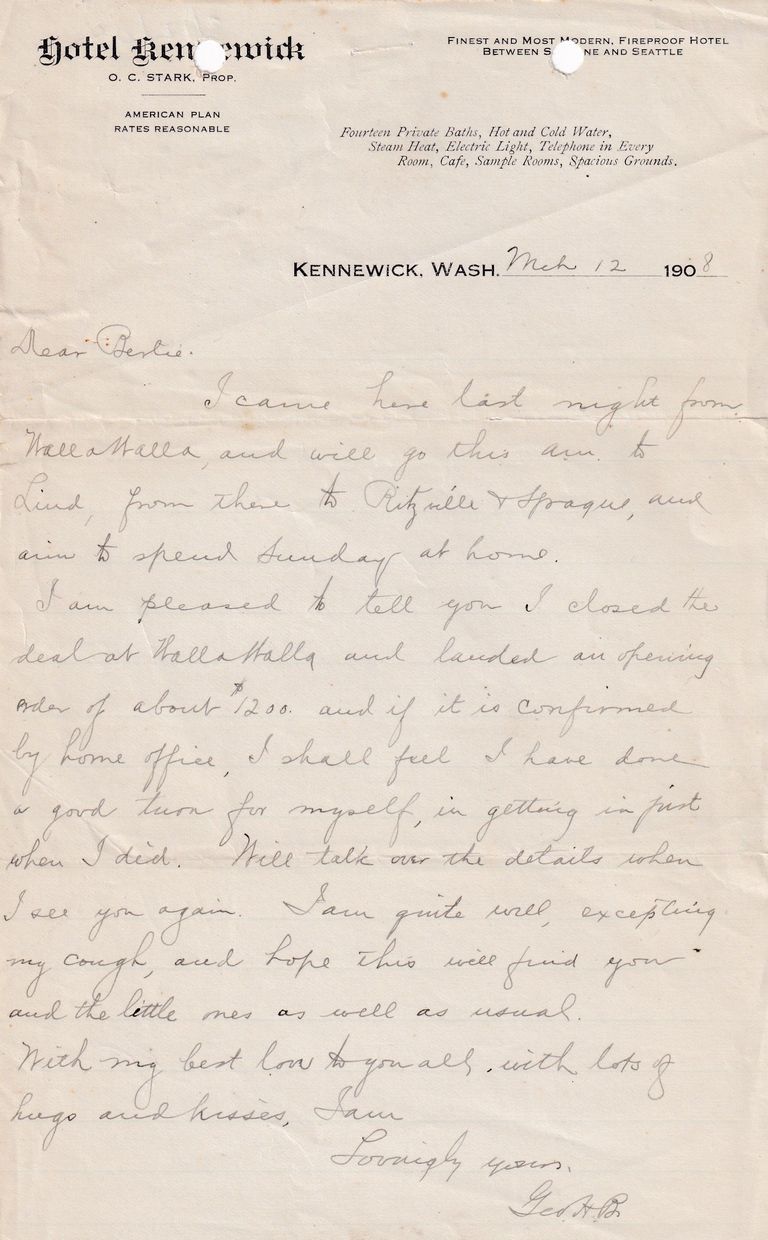 Hotel Kennewick
O. C. STARK, PROP.
AMERICAN PLAN
RATES REASONABLE
FINEST AND MOST MODERN, FIREPROOF HOTEL
BETWEEN S NE AND SEATTLE
Fourteen Private Baths, Hot and Cold Water,
Steam Heat, Electric Light, Telephone in Every
Room, Cafe, Sample Rooms, Spacious Grounds.
KENNEWICK, WASH. Mch 12 1908
Dear Bertie.
I came here last night from
Walla Walla, and will go this a.m. to
Lind, from there to Ritzville & Sprague, and
aim to spend Sunday at home.
I am pleased to tell you I closed the
deal at Walla Walla and landed an opening
order of about $1200. and if it is confirmed
by home office, I shall feel I have done
a good turn for myself, in getting in just
when I did. Will talk over the details when
I see you again. I am quite well, excepting
my cough, and hope this will find you
and the little ones as well as usual.
With my best love to you all, with lots of
hugs and kisses, I am
Lovingly yours.
Geo. H. B.